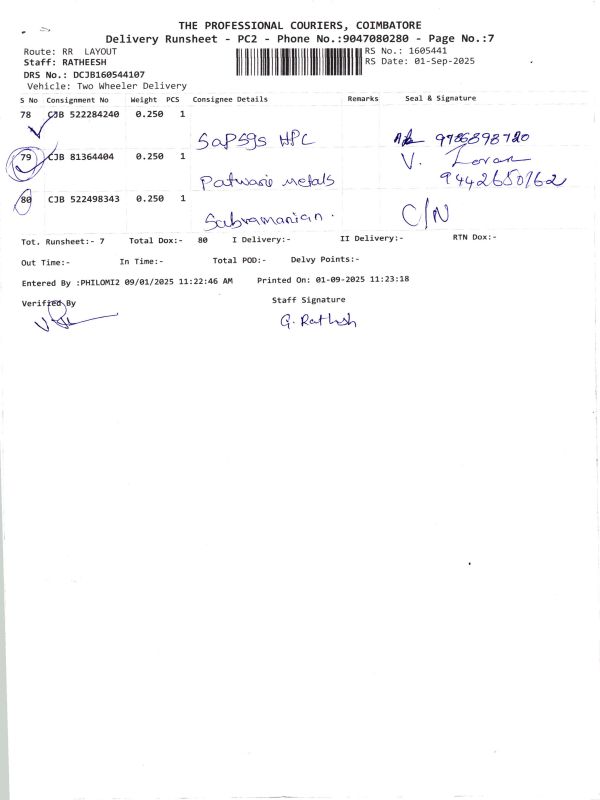 THE PROFESSIONAL COURIERS, COIMBATORE
Delivery Runsheet - PC2 - Phone No.:9047080280 - Page No.:7
Route: RR LAYOUT RS No.: 1605441
Staff: RATHEESH RS Date: 01-Sep-2025
DRS No.: DCJB160544107
Vehicle: Two Wheeler Delivery
S No Consignment No Weight PCS Consignee Details Remarks Seal & Signature
78 CJB 522284240 0.250 1
HPC
79 CJB 81364404 0.250 1 V.
Patwarie metals 9442650162
80 CJB 522498343 0.250 1 C/N
Subramanian.
Tot. Runsheet:- 7 Total Dox:- 80 I Delivery:- II Delivery:- RTN Dox:-
Out Time:- In Time:- Total POD:- Delvy Points:-
Entered By :PHILOMI2 09/01/2025 11:22:46 AM Printed On: 01-09-2025 11:23:18
Verified By Staff Signature
G. Rathsh